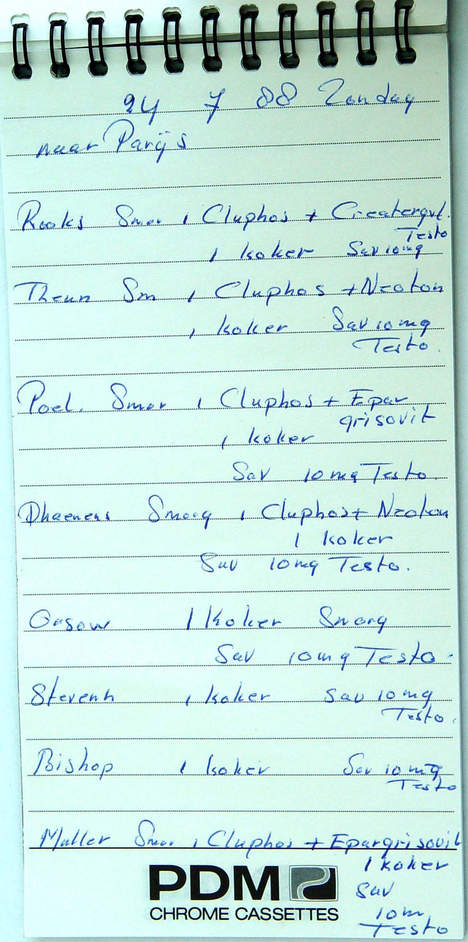 24 7 88 Zondag
naar Parijs
Rooks Smor 1 Cluphos + Creatergyl.
Testo
1 koker Sav 10mg
Theun Sm 1 Cluphos + Neoton
1 koker Sav 10mg
Testo.
Poel. Smor 1 Cluphos + Epar
grisovit
1 koker
Sav 10mg Testo.
Dhaenens Smorg 1 Cluphos + Neoton
1 koker
Sav 10mg Testo.
1 Koker Smorg
Sav 10mg Testo.
Stevenh 1 koker Sav 10mg
Testo.
Bishop 1 koker Sav 10mg
Testo
Muller Smor 1 Cluphos + Epargrisovit
1 koker
PDM
Sav
CHROME CASSETTES
10m
Testo